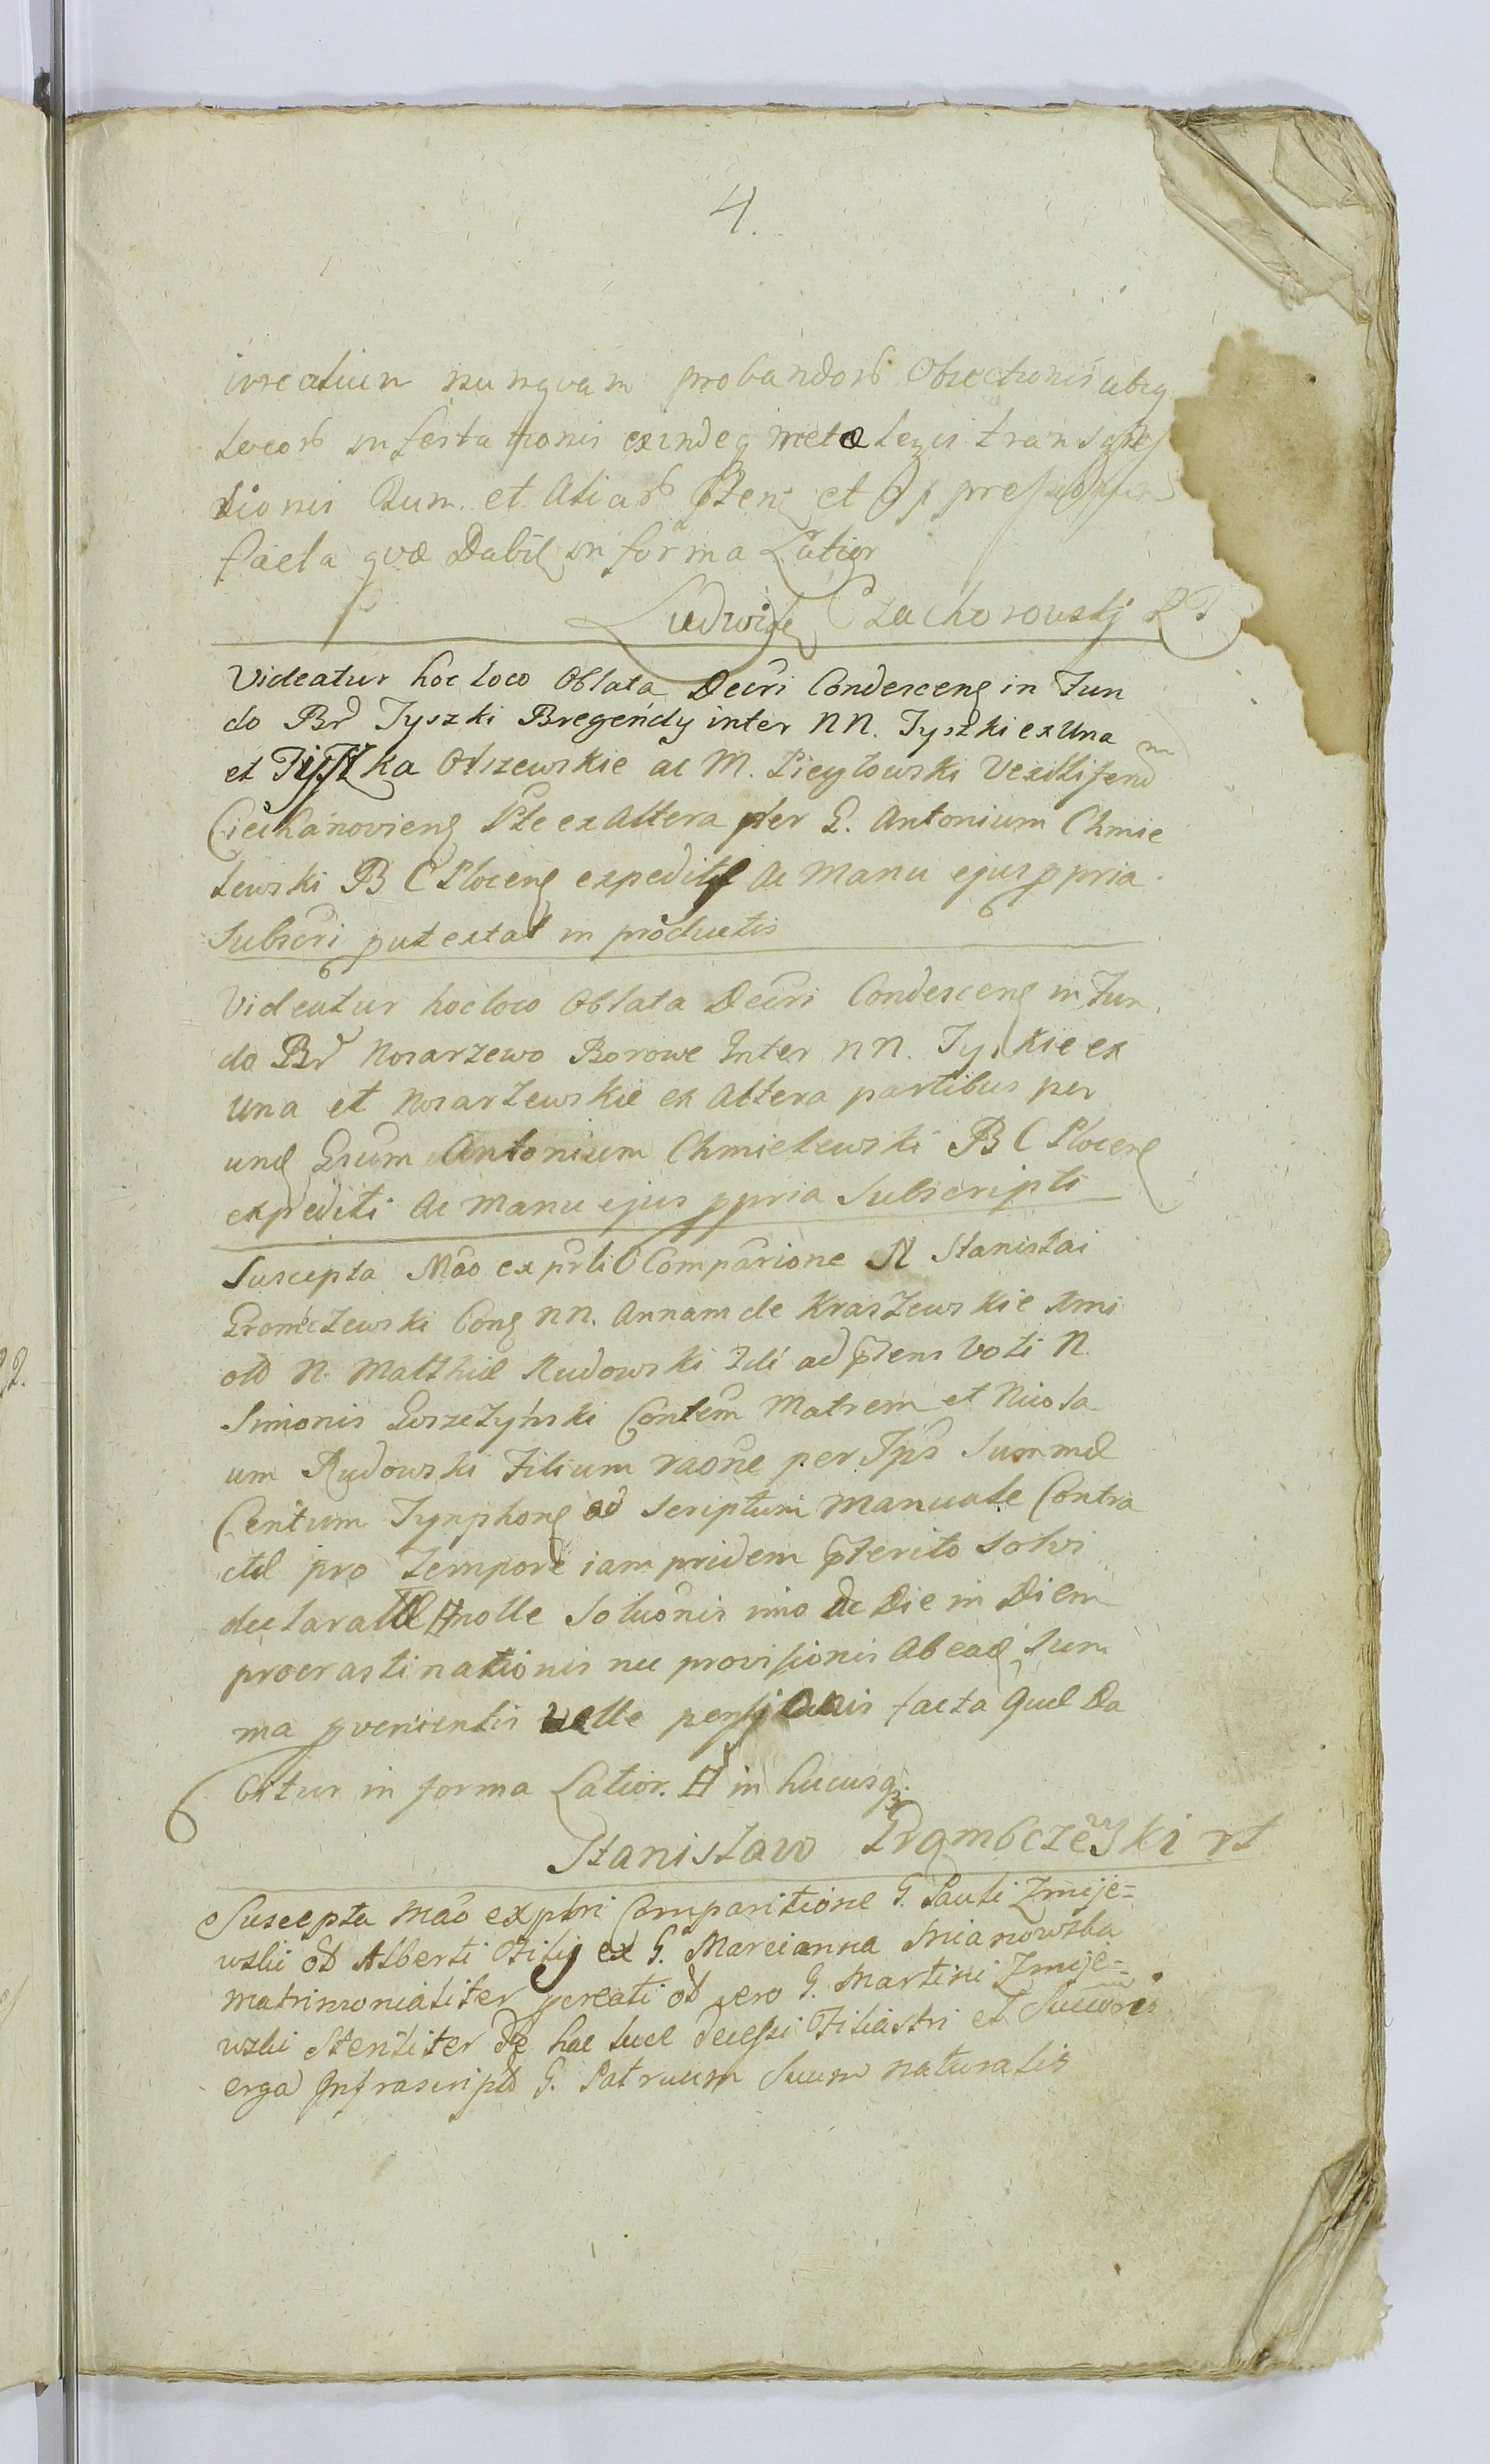 4.
nunqvam probandorum Obiectionis ubiq
locorum infestationis exindeq metæ legis transgres
sionis Sum. et Aliarum et
facta qvæ Dabit in forma Latior
Ludwik Czachorowskj RT
Videatur hoc loco Oblata Decri Condescens in Fun
do Br Tyszki Bregendy inter NN. Tyszki ex Una
et Tyszka Olszewskie ac M. Vexillifer
Ciechanoviens Pte ex Altera per G. Antonium Chmie
lewski B C Plocens expediti Ac Manu ejus ppria
Subscri put extat in productis
Videatur hoc loco Oblata Decri Condescens in Fun
do Br Nosarzewo Borowe Inter NN. Tyskie ex
Una et Nosarzewskie ex Altera partibus per
unq Grum Antonium Chmielewski B C Plocens
expediti Ac Manu ejus ppria Subscripti
Suscepta Mão ex prli Comparione N Stanislai
Gromczewski Cons NN. Annam de Kraszewskie Imi
olim N. Matthiæ Rudowski 2di ad ptens Voti N.
Simonis Contem Matrem et Nicola
um Rudowski Filium raone per Ips Summæ
Centum Tynphons ad Scriptum Manuale Contra
ctæ pro Tempore iam pridem pterito Solvi
declaratæ nolle Solucõnis imo De Die in Diem
procrastinationis nec provisionis Ab ead Sum
ma pvenientis velle facta Quæ Da
bitur in forma Latior. in hucusq.
Stanislaw Grąmbczeski rt
Suscepta Mão ex ptri Comparitione G. Pauli Zmije=
wski olim Alberti Filij ex G. Marcianna Mianowska
matrimonialiter pcreati olim vero G. Martini Zmije=
wski Steriliter de hac luce decessi Filiastri et Succoris
erga Infrascriptum G. Patruum Suum naturalis